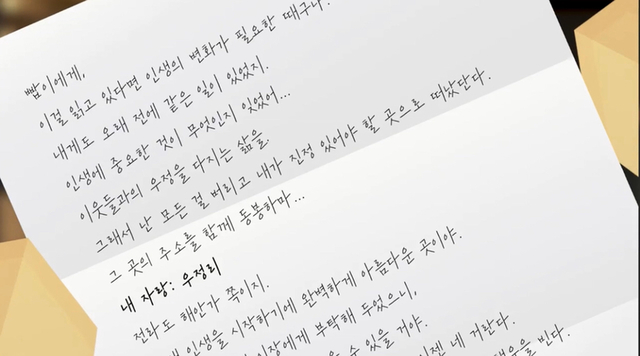 빰이에게,
이걸 읽고 있다면 인생의 변화가 필요한 때구나.
내게도 오래 전에 같은 일이 있었지.
인생에 중요한 것이 무엇인지 잊었어...
이웃들과의 우정을 다지는 삶을
그래서 난 모든 걸 버리고 내가 진정 있어야 할 곳으로 떠났단다.
그 곳의 주소를 함께 동봉하마...
내 자랑: 우정리
전라도 해안가 쪽이지.
인생을 시작하기에 완벽하게 아름다운 곳이야.
이장에게 부탁해 두었으니,
수 있을 거야.
이젠 네 거란다.
빈다.